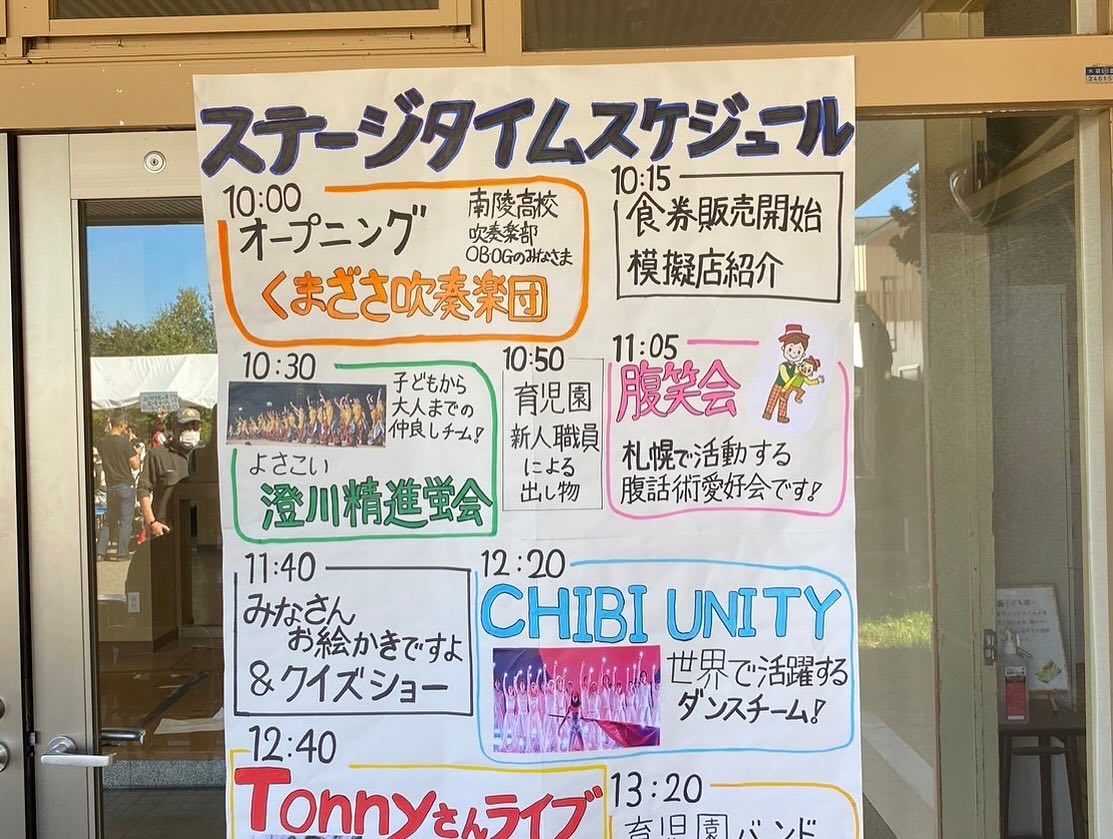 ステージタイムスケジュール
10:00
オープニング
南陵高校
吹奏楽部
OBOGのみなさま
くまざさ吹奏楽団
10:15
食券販売開始
模擬店紹介
10:30
子どもから
大人までの
仲良しチーム!
よさこい
澄川精進蛍会
10:50
育児園
新人職員
による
出し物
11:05
腹笑会
札幌で活動する
腹話術愛好会です!
11:40
みなさん
お絵かきですよ
&クイズショー
12:20
CHIBI UNITY
世界で活躍する
ダンスチーム!
12:40
Tonnyさんライブ
13:20
育児園バンド